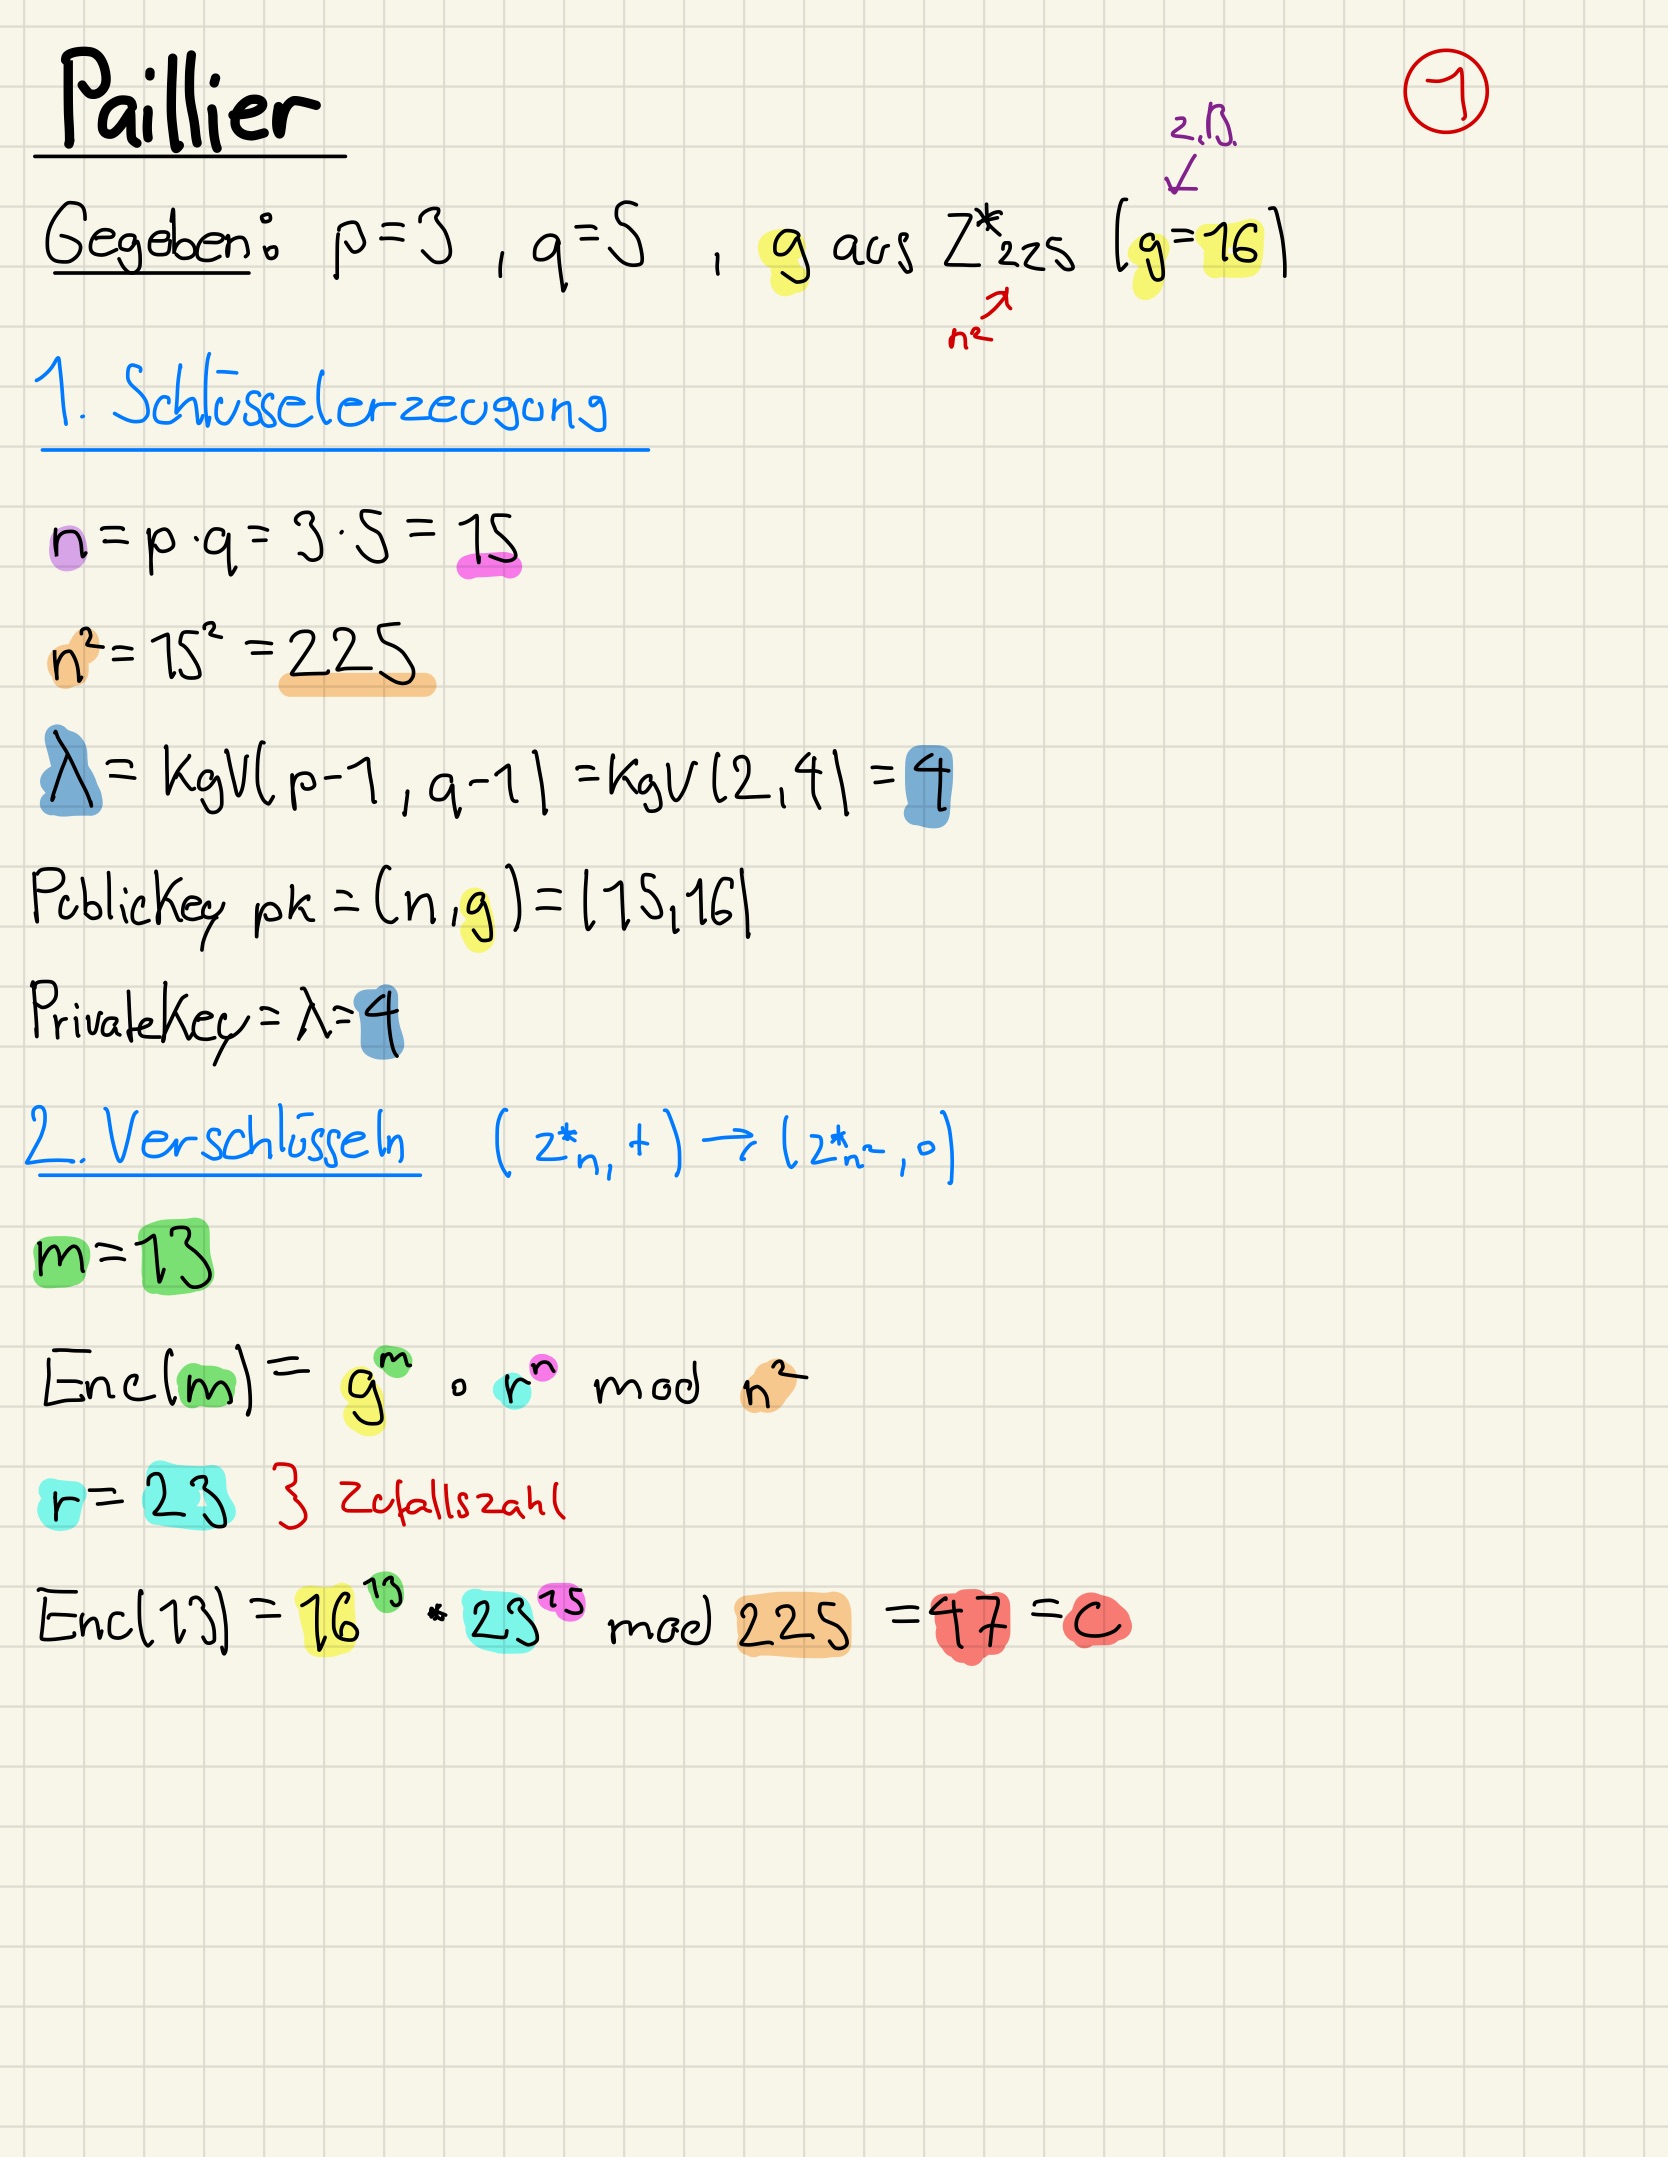 Paillier
1
z.B.
Gegeben: p=3 , q=5 , g aus Z*225 (g=16)
n²
1. Schlüsselerzeugung
n = p·q = 3·5 = 15
n² = 15² = 225
λ = kgV(p-1, q-1) = kgV(2,4) = 4
PublicKey pk = (n,g) = (15,16)
PrivateKey = λ = 4
2. Verschlüsseln (Z*n, +) → (Z*n², ∘)
m = 13
Enc(m) = g^m ∘ r^n mod n²
r = 23 } Zufallszahl
Enc(13) = 16^13 * 23^15 mod 225 = 47 = c